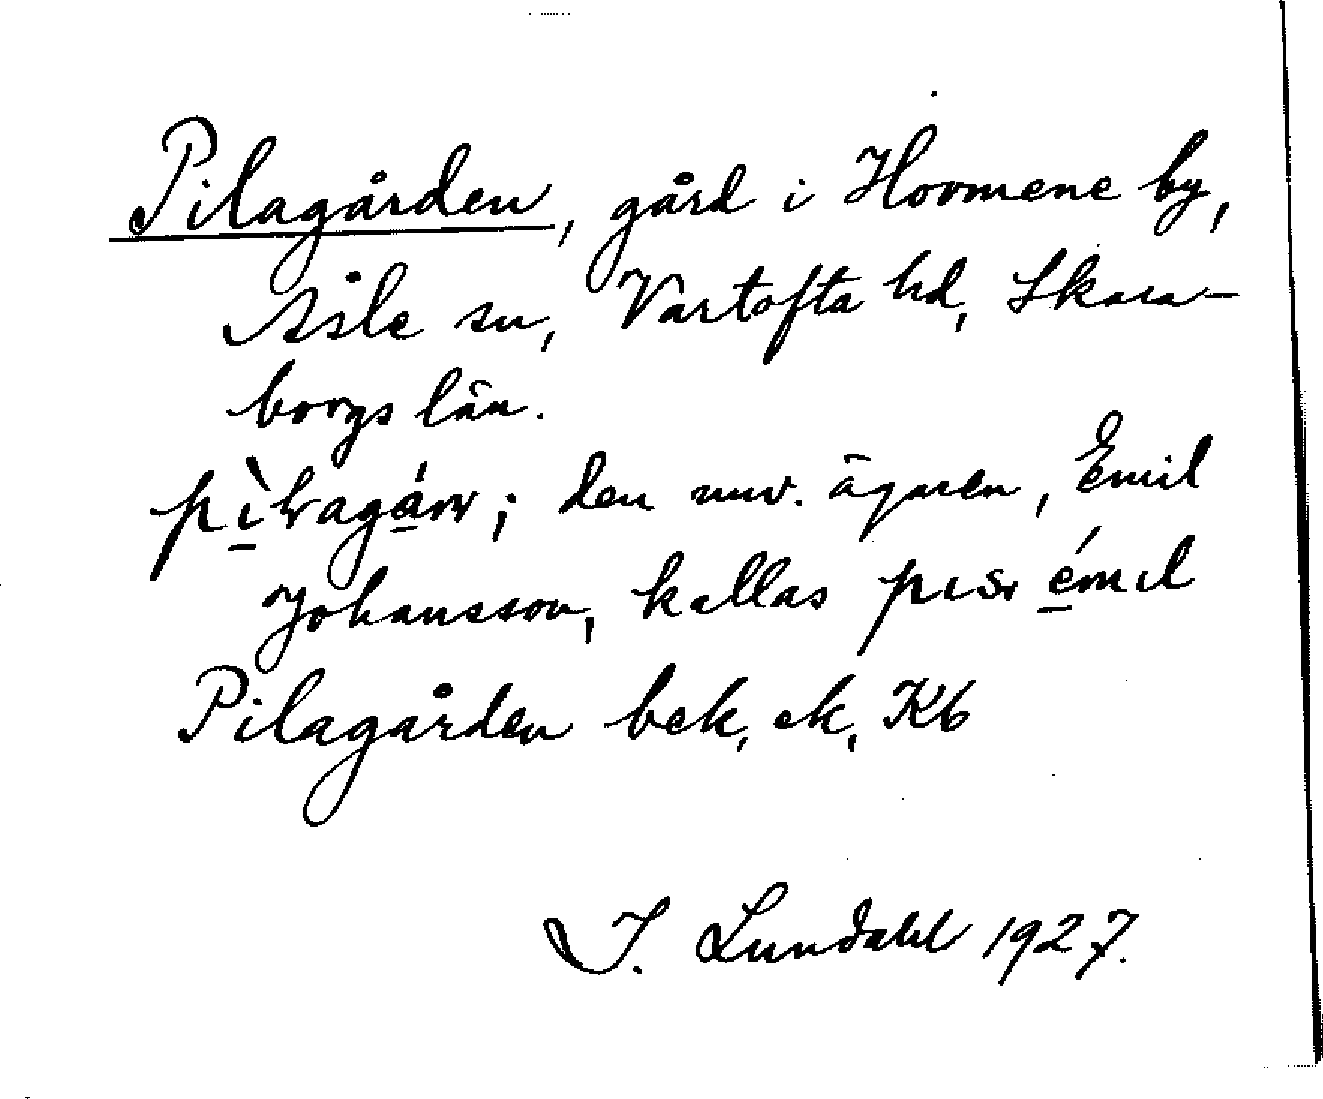 Pilagården, gård i Hovmene by,
Åsle sn, Vartofta hd, Skara-
borgs län.
den nuv. ägaren, Emil
Johansson, kallas
Pilagården bek, ek, Kb
I. Lundahl 1927.